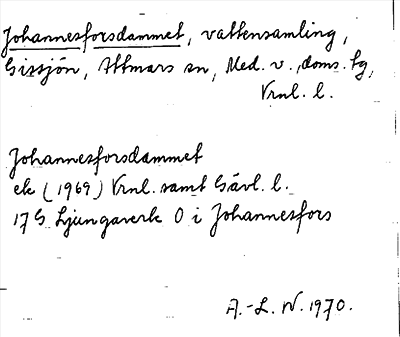 Johannesforsdammet, vattensamling,
Gissjön, Attmars sn, Med. v., doms. tg,
Vrnl. l.
Johannesforsdammet
ek (1969) Vrnl. samt Gävl. l.
17 G Ljungaverk O i Johannesfors
A.-L. N. 1970.